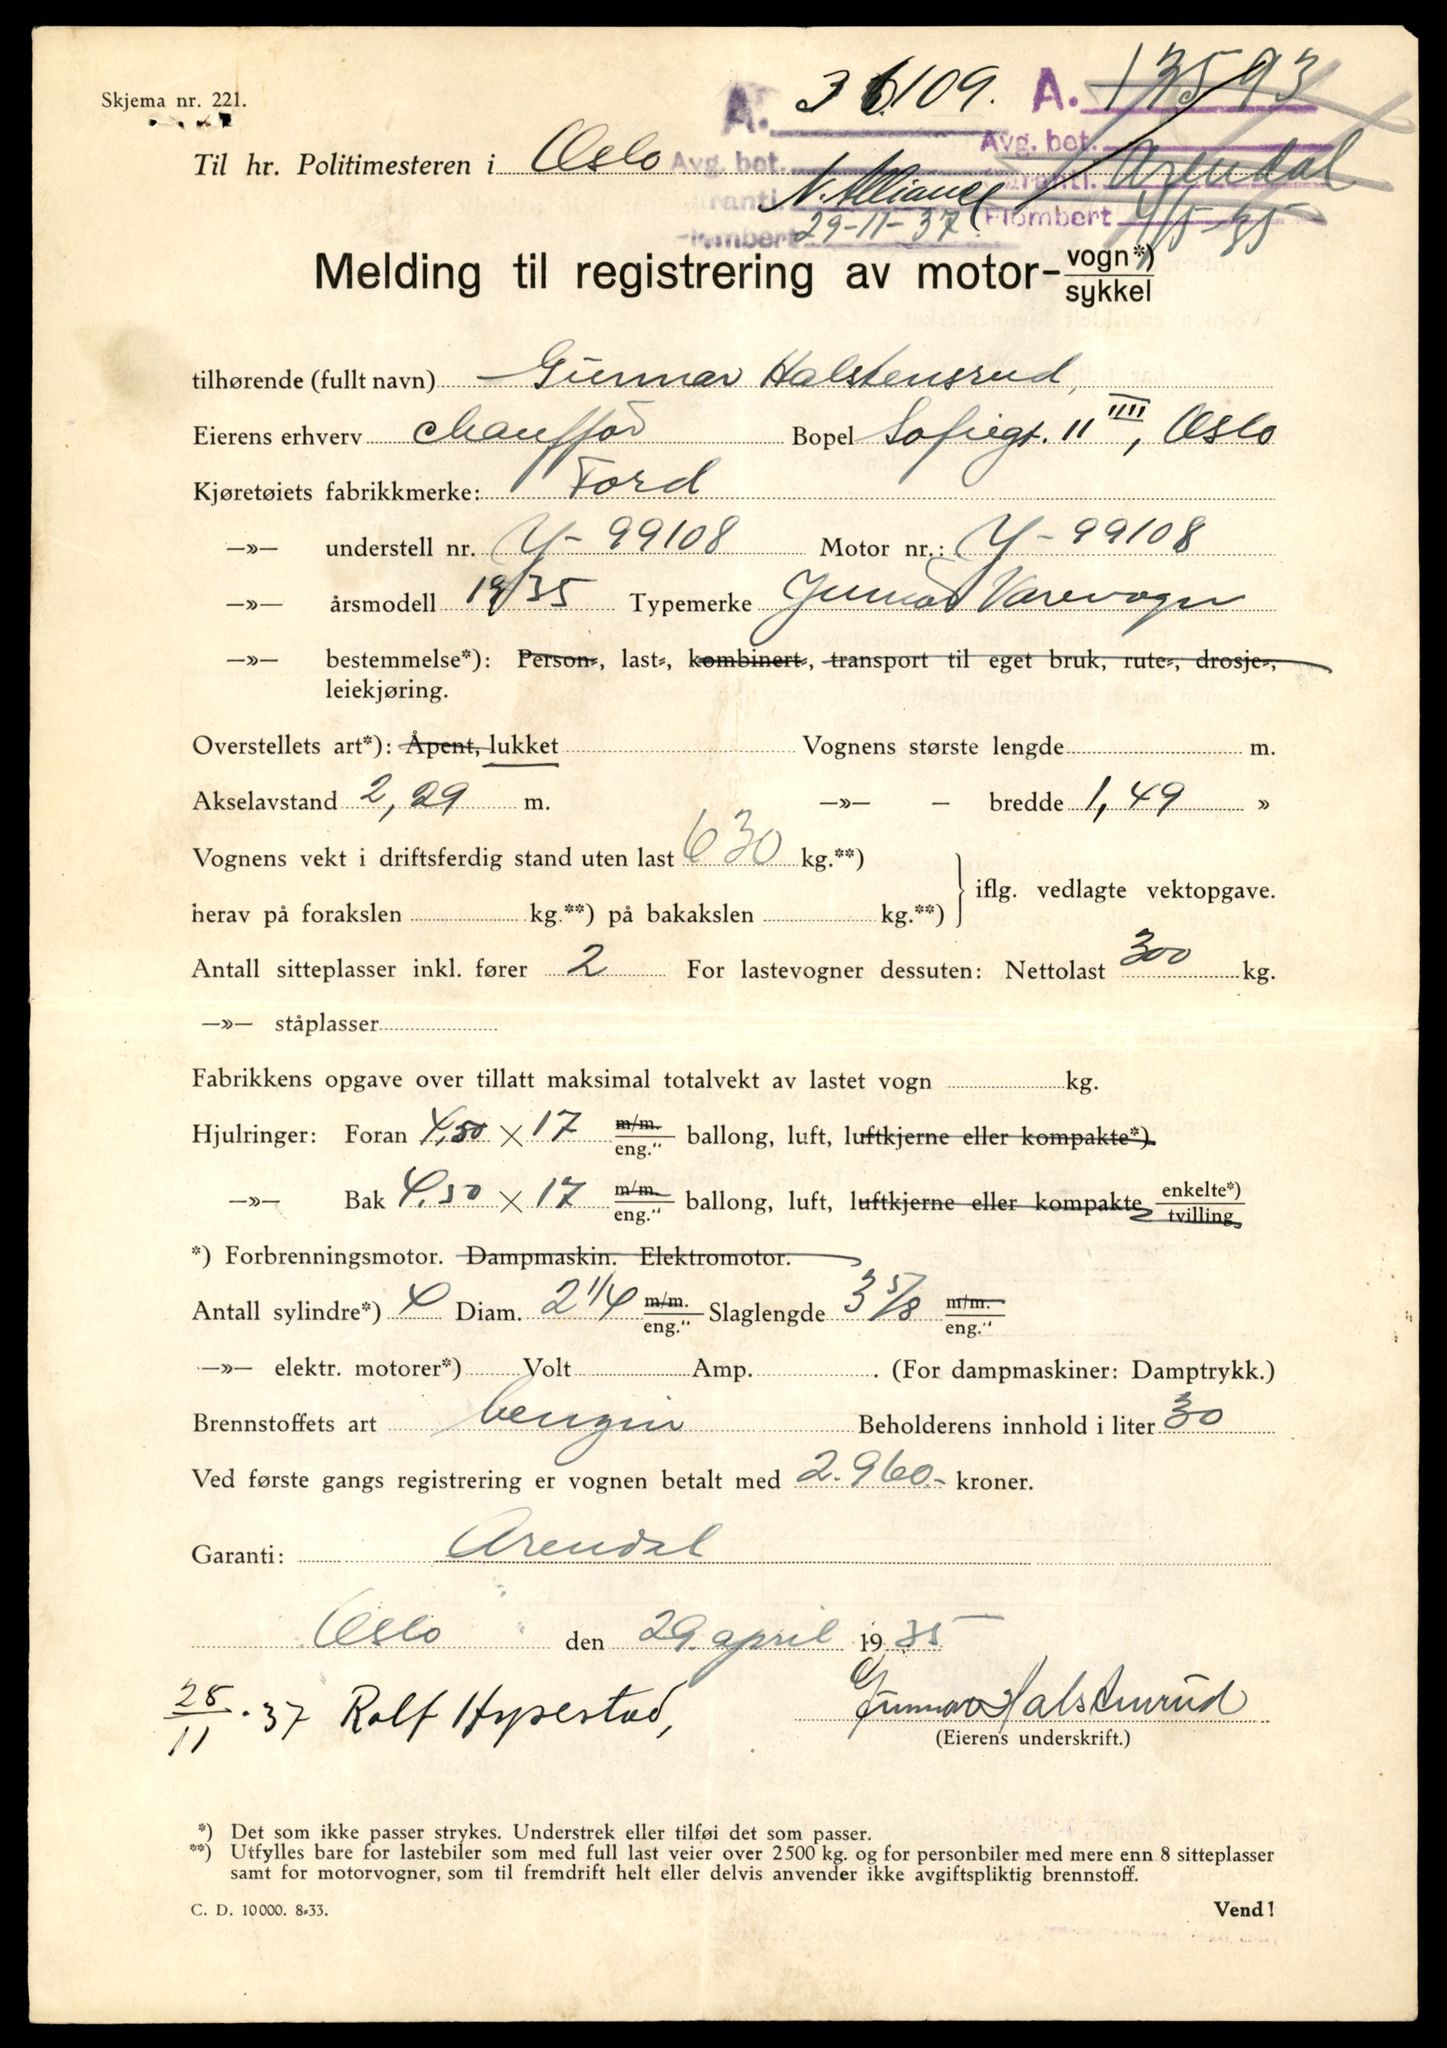 Skjema nr. 221.
A. 36109. A. 13593
Avg. bet. Avg. bet.
Til hr. Politimesteren i Oslo
Garanti. N. Alliance Garanti. Arendal
Plombert 29-11-37. Plombert 4/5-35
Melding til registrering av motor-vogn*)
sykkel
tilhørende (fullt navn) Gunnar Halstensrud,
Eierens erhverv chauffør Bopel Sofiegt. 11 III, Oslo
Kjøretøiets fabrikkmerke: Ford
—»— understell nr. Y-99108 Motor nr.: Y-99108
—»— årsmodell 1935 Typemerke Junior Varevogn
—»— bestemmelse*): Person-, last-, kombinert-, transport til eget bruk, rute-, drosje-,
leiekjøring.
Overstellets art*): Åpent, lukket Vognens største lengde m.
Akselavstand 2,29 m. —»— — bredde 1,49 »
Vognens vekt i driftsferdig stand uten last 630 kg.**)
iflg. vedlagte vektopgave.
herav på forakslen kg.**) på bakakslen kg.**)
Antall sitteplasser inkl. fører 2 For lastevogner dessuten: Nettolast 300 kg.
—»— ståplasser
Fabrikkens opgave over tillatt maksimal totalvekt av lastet vogn kg.
Hjulringer: Foran 4,50 × 17 m/m. eng." ballong, luft, luftkjerne eller kompakte*).
—»— Bak 4,50 × 17 m/m. eng." ballong, luft, luftkjerne eller kompakte, enkelte*) tvilling.
*) Forbrenningsmotor. Dampmaskin. Elektromotor.
Antall sylindre*) 4 Diam. 2 1/4 m/m. eng." Slaglengde 3 5/8 m/m. eng."
—»— elektr. motorer*) Volt Amp. . (For dampmaskiner: Damptrykk.)
Brennstoffets art bengin Beholderens innhold i liter 30
Ved første gangs registrering er vognen betalt med 2.960.- kroner.
Garanti: Arendal
Oslo den 29. april 1935
28/11.37 Rolf Gunnar Halstensrud
(Eierens underskrift.)
*) Det som ikke passer strykes. Understrek eller tilføi det som passer.
**) Utfylles bare for lastebiler som med full last veier over 2500 kg. og for personbiler med mere enn 8 sitteplasser
samt for motorvogner, som til fremdrift helt eller delvis anvender ikke avgiftspliktig brennstoff.
C. D. 10000. 8-33. Vend!